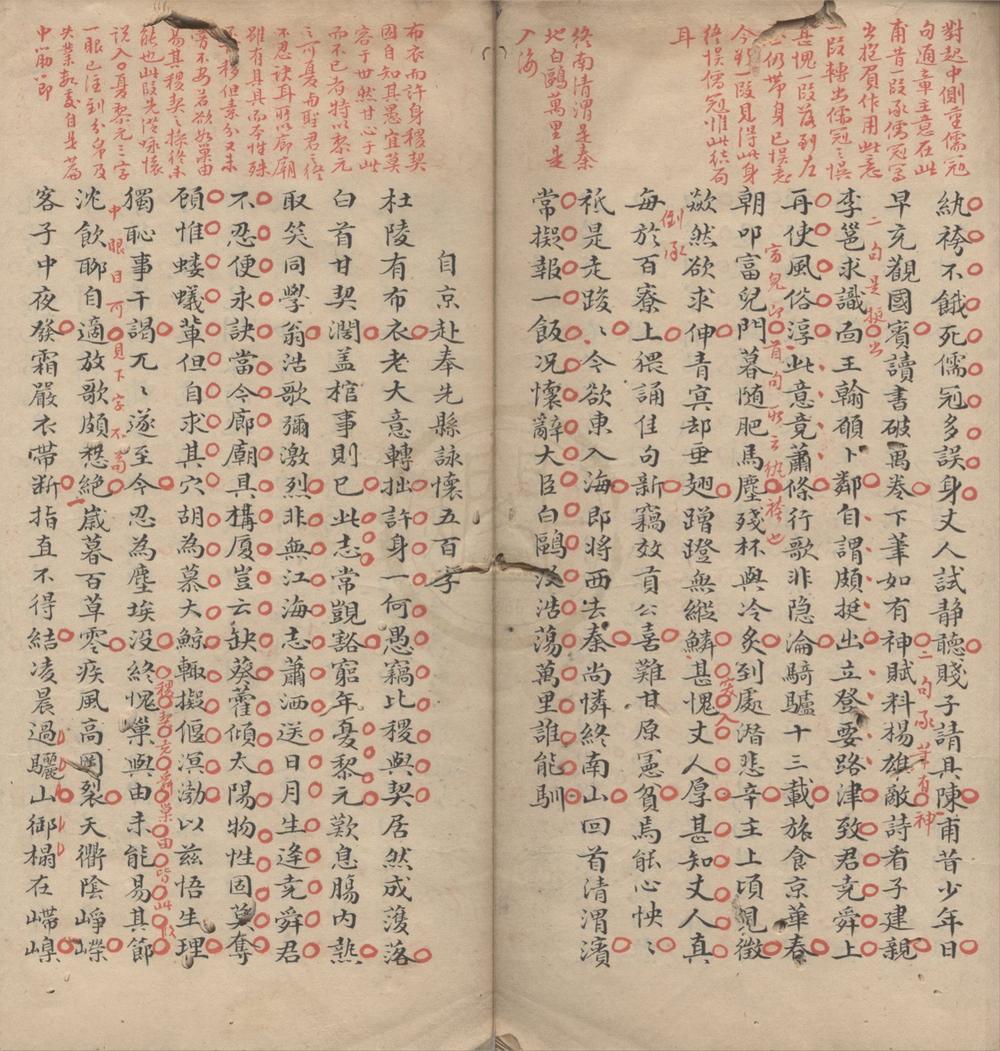 對起中側重儒冠
句通章主意在此
甫昔一段承儒冠寫
出抱負作用此意
一段轉出儒冠之悞
甚愧一段落到左
丞仍帶身已悞意
今欲一段見得此身
終悞儒冠惟此結局
耳
終南清渭是秦
地白鷗萬里是
入海
紈袴不餓死儒冠多誤身丈人試静聽賤子請具陳甫昔少年日
早充觀國賓讀書破萬卷下筆如有神賦料楊雄敵詩看子建親
李邕求識面王翰願卜鄰自謂頗挺出立登要路津致君堯舜上
再使風俗淳此意竟蕭條行歌非隐淪騎驢十三載旅食京華春
朝叩富兒門暮随肥馬塵殘杯與冷炙到處潜悲辛主上頃見徵
歘然欲求伸青冥却垂翅蹭蹬無縱鱗甚愧丈人厚甚知丈人真
每於百寮上猥誦佳句新竊效貢公喜難甘原憲貧焉能心怏〻
祗是走踆〻今欲東入海即將西去秦尚憐終南山回首清渭濱
常擬報一飯況懷辭大臣白鷗没浩蕩萬里誰能馴
二句是挺出
二句承筆有神
富兒即首句所云紈袴也
突入
倒承
布衣而許身稷契
固自知其愚宜莫
容于世然甘心于此
而不已者特以黎元
之可憂而聖君之終
不忍訣耳所以廊廟
雖有具具而本性殊
不移但素分又未
嘗不安若欲如巢由
易其稷契之操終未
能也此段先從咏懷
說入〇身黎元三字
一眼已注到分帛及
失業數處自是篇
中筋節
自京赴奉先縣詠懷五百字
杜陵有布衣老大意轉拙許身一何愚竊比稷與契居然成濩落
白首甘契濶盖棺事則已此志常覬豁窮年憂黎元歎息腸内熱
取笑同學翁浩歌彌激烈非無江海志蕭洒送日月生逢堯舜君
不忍便永訣當今廊廟具構厦豈云缺葵藿傾太陽物性固莫奪
顧惟螻蟻輩但自求其穴胡為慕大鯨輒擬偃溟渤以兹悟生理
獨恥事干謁兀〻遂至今忍為塵埃没終愧巢與由未能易其節
沈飲聊自適放歌頗愁絶歲暮百草零疾風高岡裂天衢陰崢嶸
客子中夜發霜嚴衣帶断指直不得結凌晨過驪山御榻在嵽嵲
稷契堯前巢由
中眼目可見下字不苟